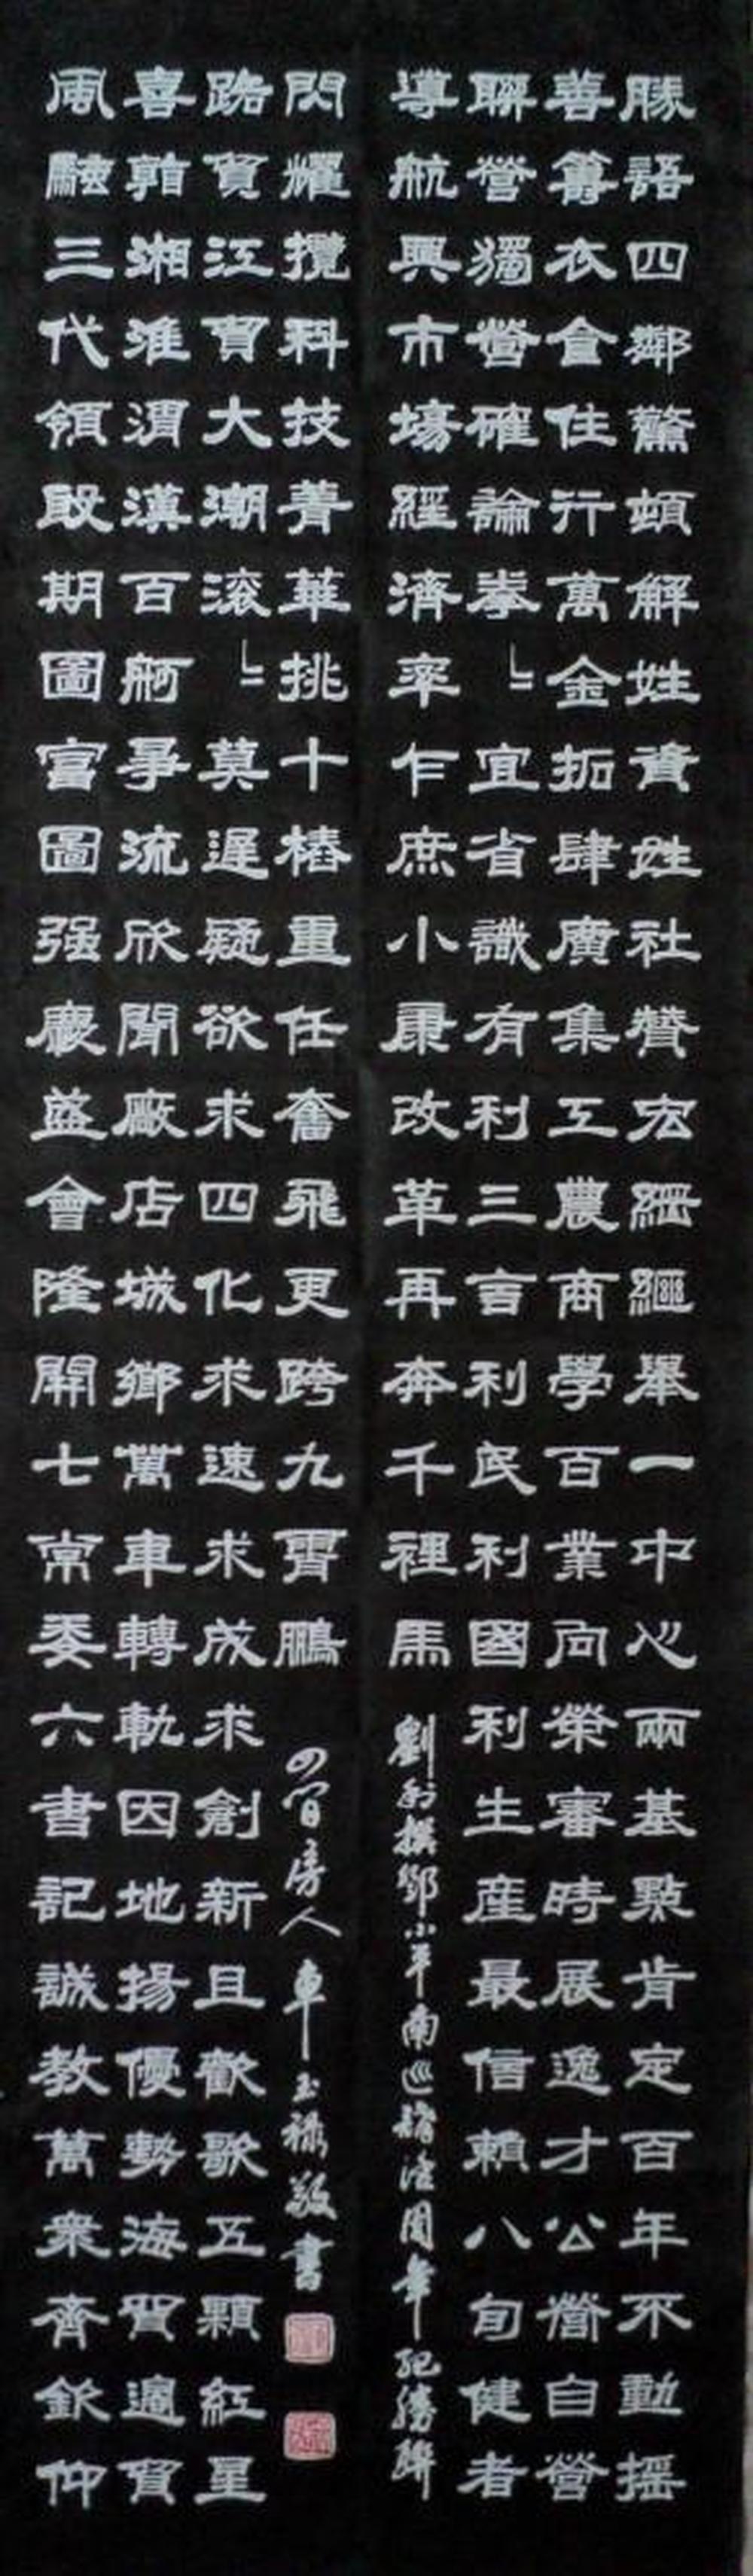 勝語四鄰驚頓解姓資姓社贊宏綱繼舉一中心兩基點肯定百年不動摇
善籌衣食住行萬金拓肆廣集工農商學百業向榮審時展逸才公營自營
聯營獨營確論拳〻宜省識有利三吉利民利國利生産最信賴八旬健者
導航興市場經濟率乍庶小康改革再奔千裡馬
劉撰鄧小平南巡周年紀勝聯
風騷三代領殷期圖富圖强慶盛會隆開七常委六書記誠教萬衆齊欽仰
喜湘淮渭漢百舸爭流欣聞廠店城鄉萬車轉軌因地揚優勢海貿邊貿
路貿江貿大潮滾〻莫遲疑欲求四化求速求成求創新且歡歌五顆紅星
閃耀攬科技菁華挑十樁重任奮飛更跨九霄鵬
房人車玉祿敬書